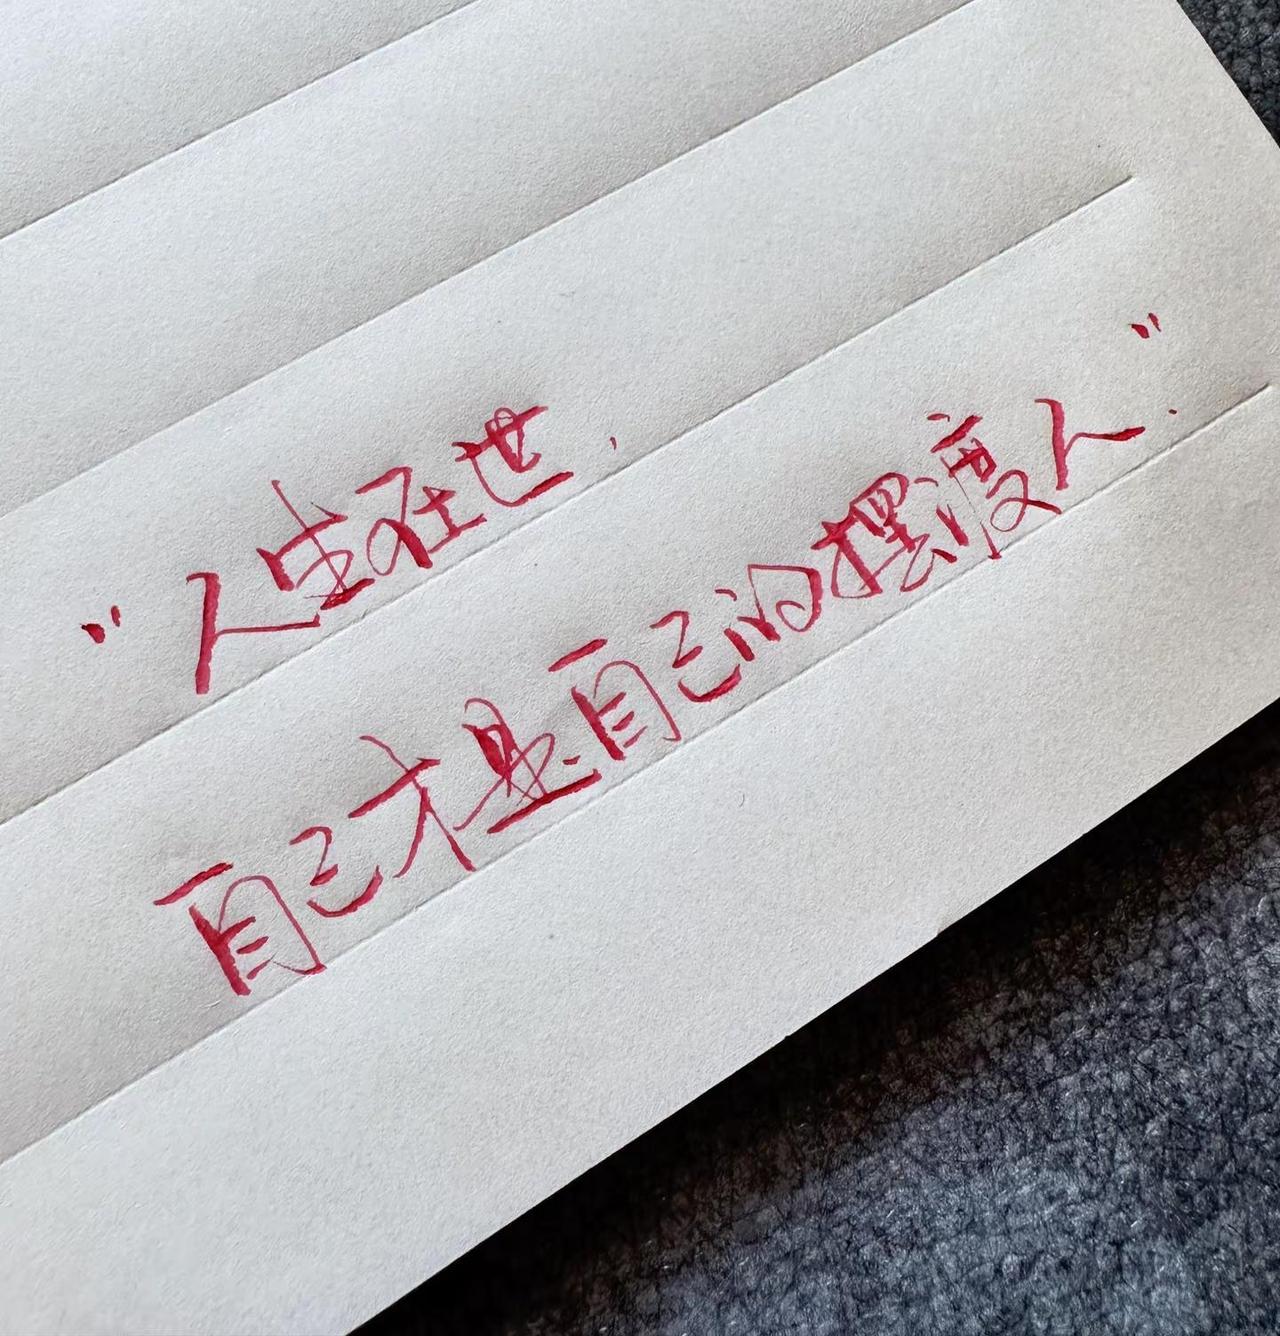 “人生在世，
自己才是自己的摆渡人.”